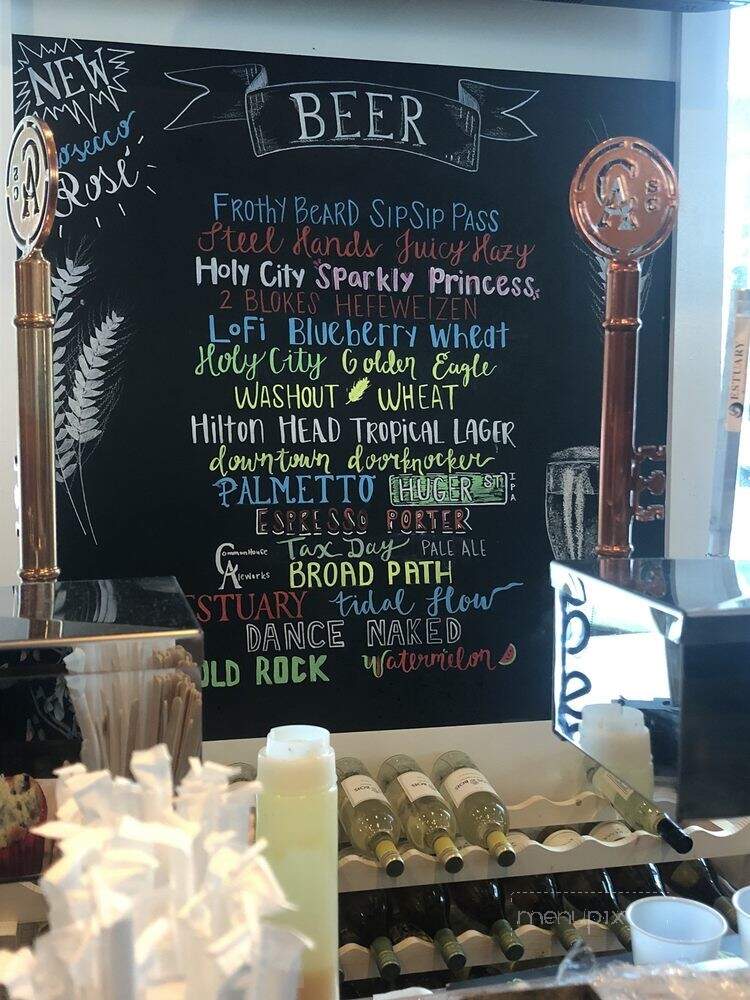 NEW
BEER
Rosé
FROTHY BEARD SIPSIP PASS
Steel Hands Juicy Hazy
HOLY CITY SPARKLY PRINCESS
2 BLOKES HEFEWEIZEN
LOFI BLUEBERRY WHEAT
Holy City Golden Eagle
WASHOUT WHEAT
HILTON HEAD TROPICAL LAGER
downtown doorknocker
PALMETTO HUGER ST IPA
ESPRESSO PORTER
CommonHouse Aleworks Tax Day PALE ALE
BROAD PATH
ESTUARY tidal flow
DANCE NAKED
OLD ROCK Watermelon
CA SC
ESTUARY
menupix